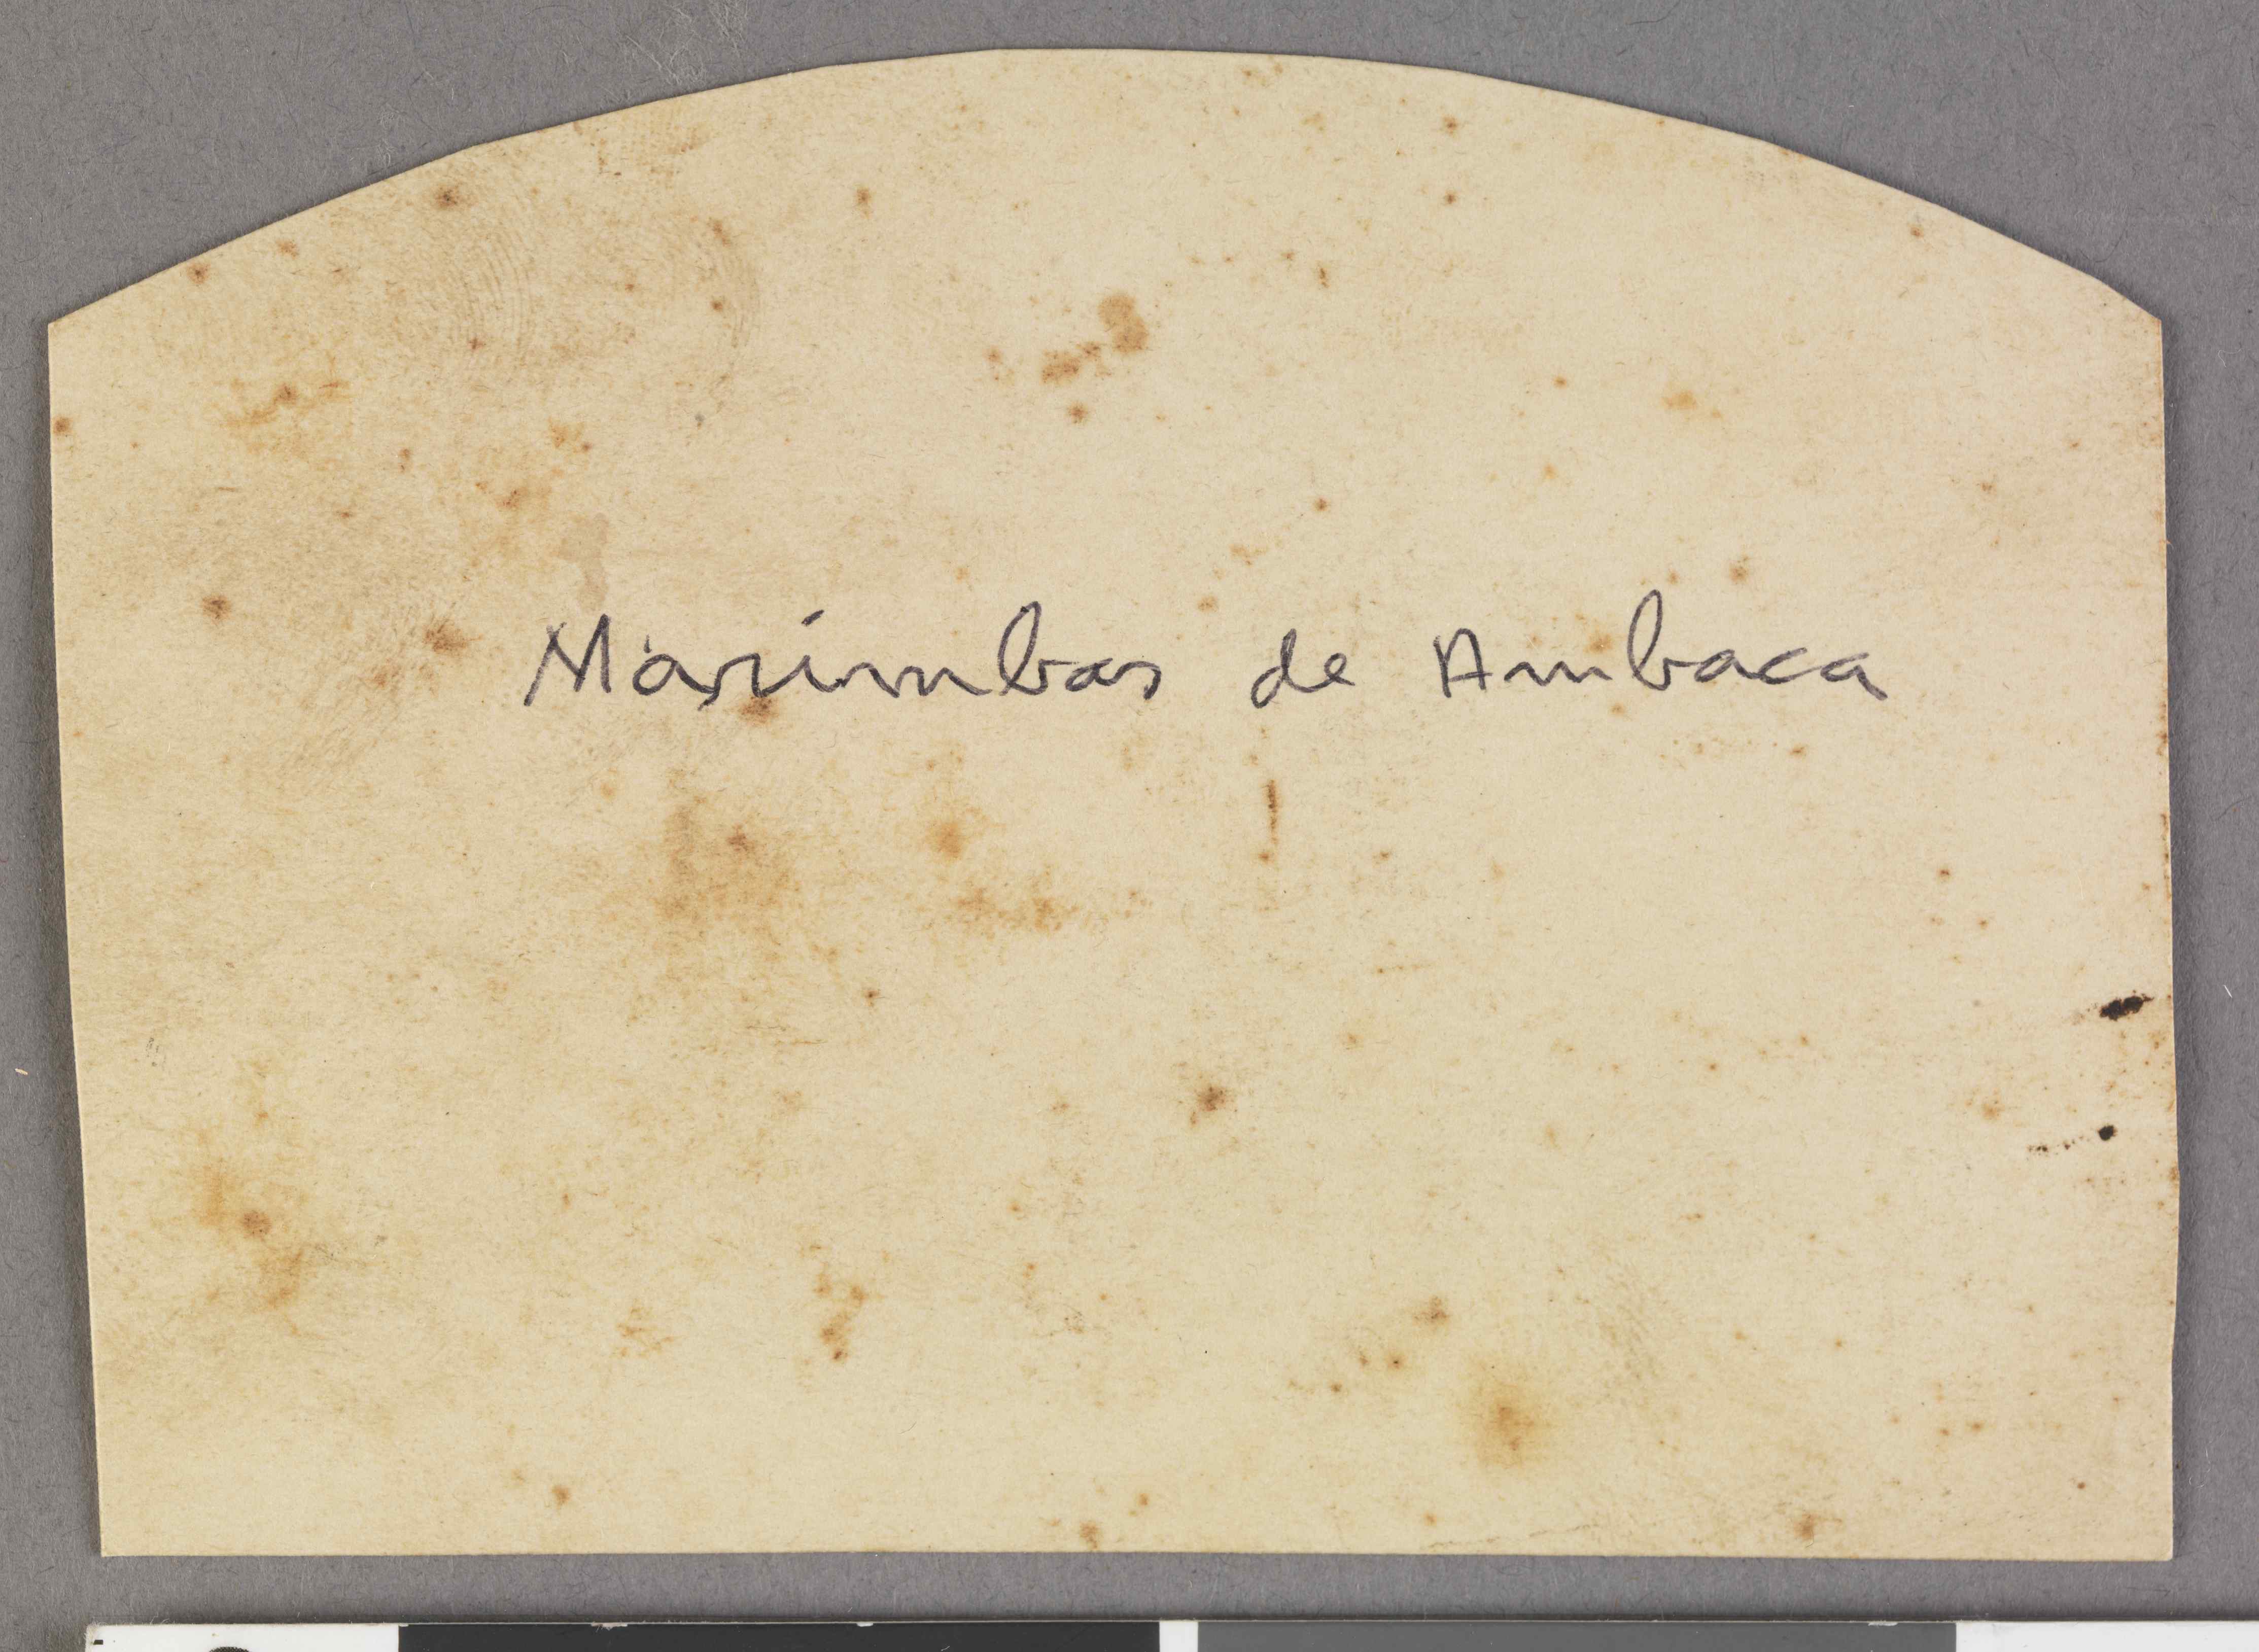 Marimbas de Ambaca